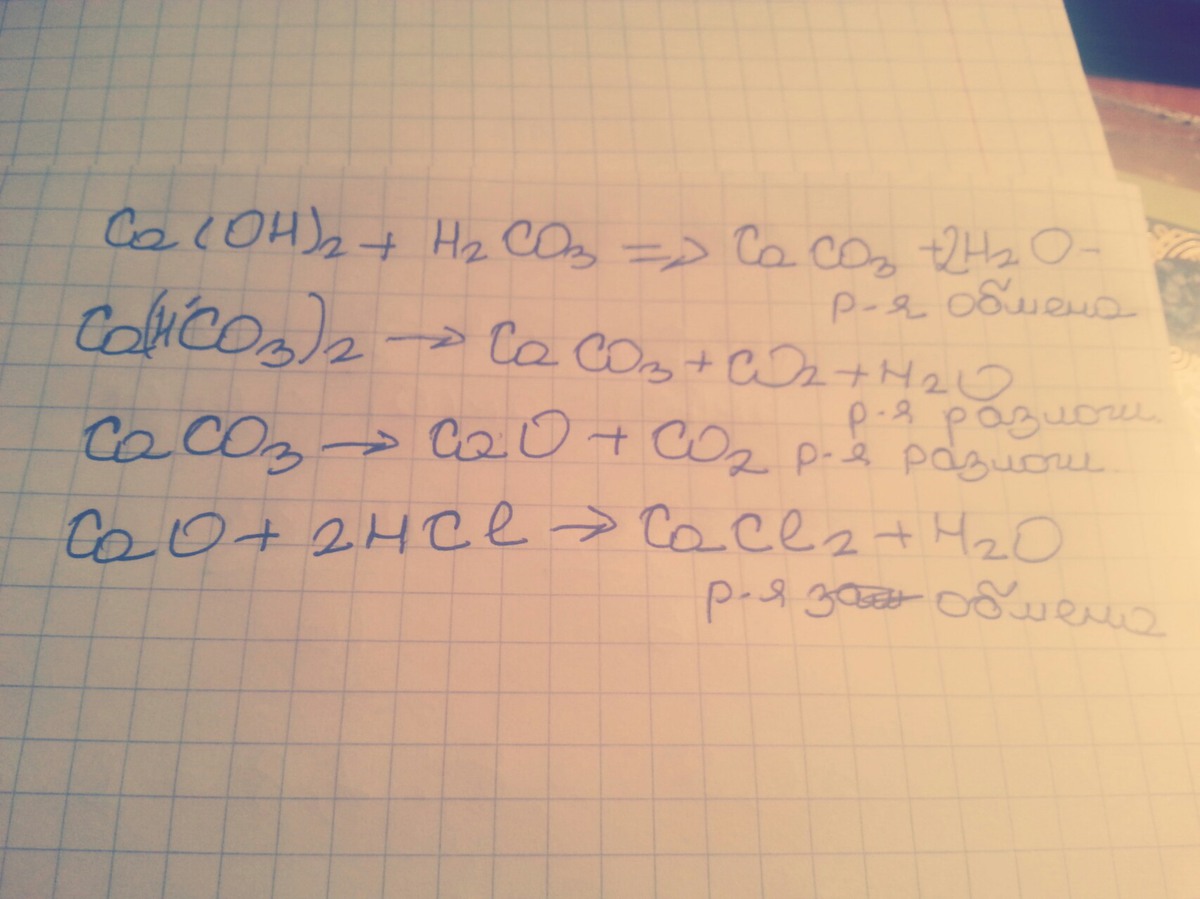 Ca(OH)2 + H2CO3 => CaCO3 + 2H2O -
р-я обмена
Ca(HCO3)2 → CaCO3 + CO2 + H2O
р-я разлож.
CaCO3 → CaO + CO2 р-я разлож.
CaO + 2HCl → CaCl2 + H2O
р-я обмена